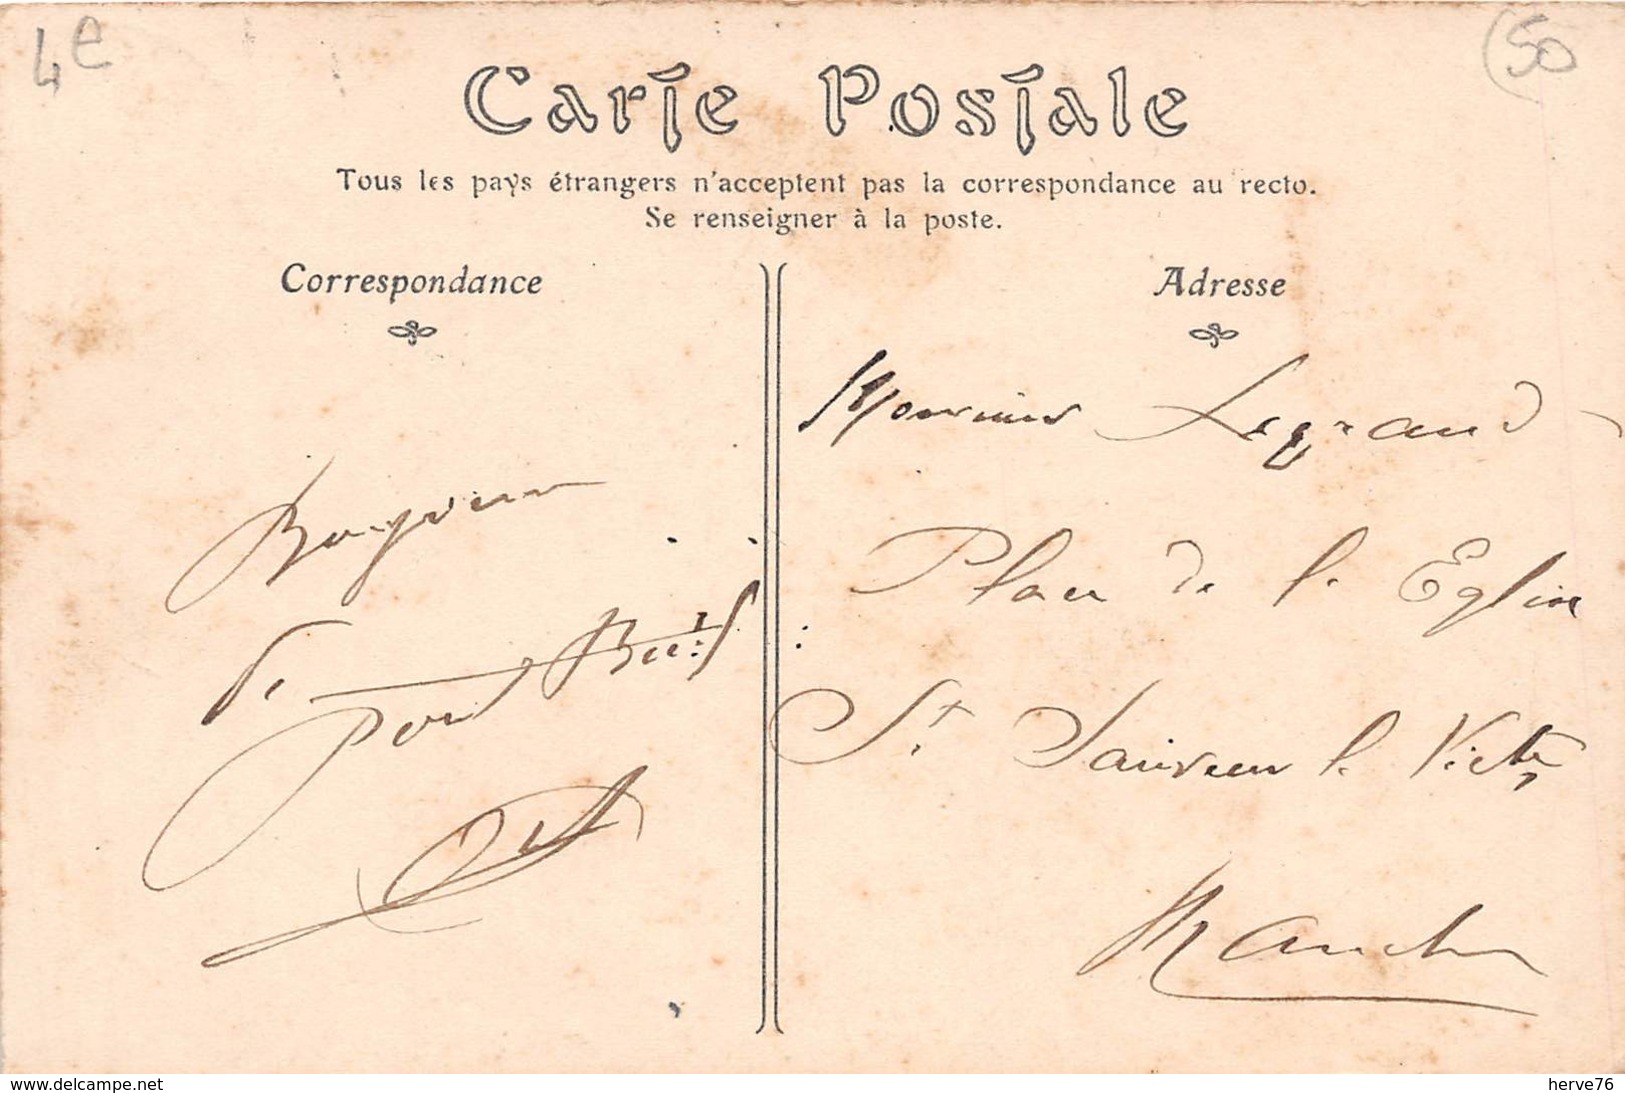 4e
50
Carte Postale
Tous les pays étrangers n'acceptent pas la correspondance au recto.
Se renseigner à la poste.
Correspondance
Adresse
Monsieur Legrand
Place de la Eglise
St Sauveur le Victe
Manche
de
www.delcampe.net
herve76